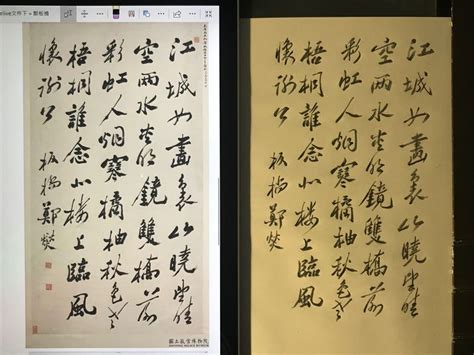 鄭板橋
江城如畫裏山曉望晴
空兩水夾明鏡雙橋落
彩虹人烟寒橘柚秋色老
梧桐誰念北樓上臨風
懷謝公
板橋鄭燮
國立故宮博物院
江城如畫裏山曉望晴
空兩水夾明鏡雙橋落
彩虹人烟寒橘柚秋色老
梧桐誰念北樓上臨風
懷謝公
板橋鄭燮